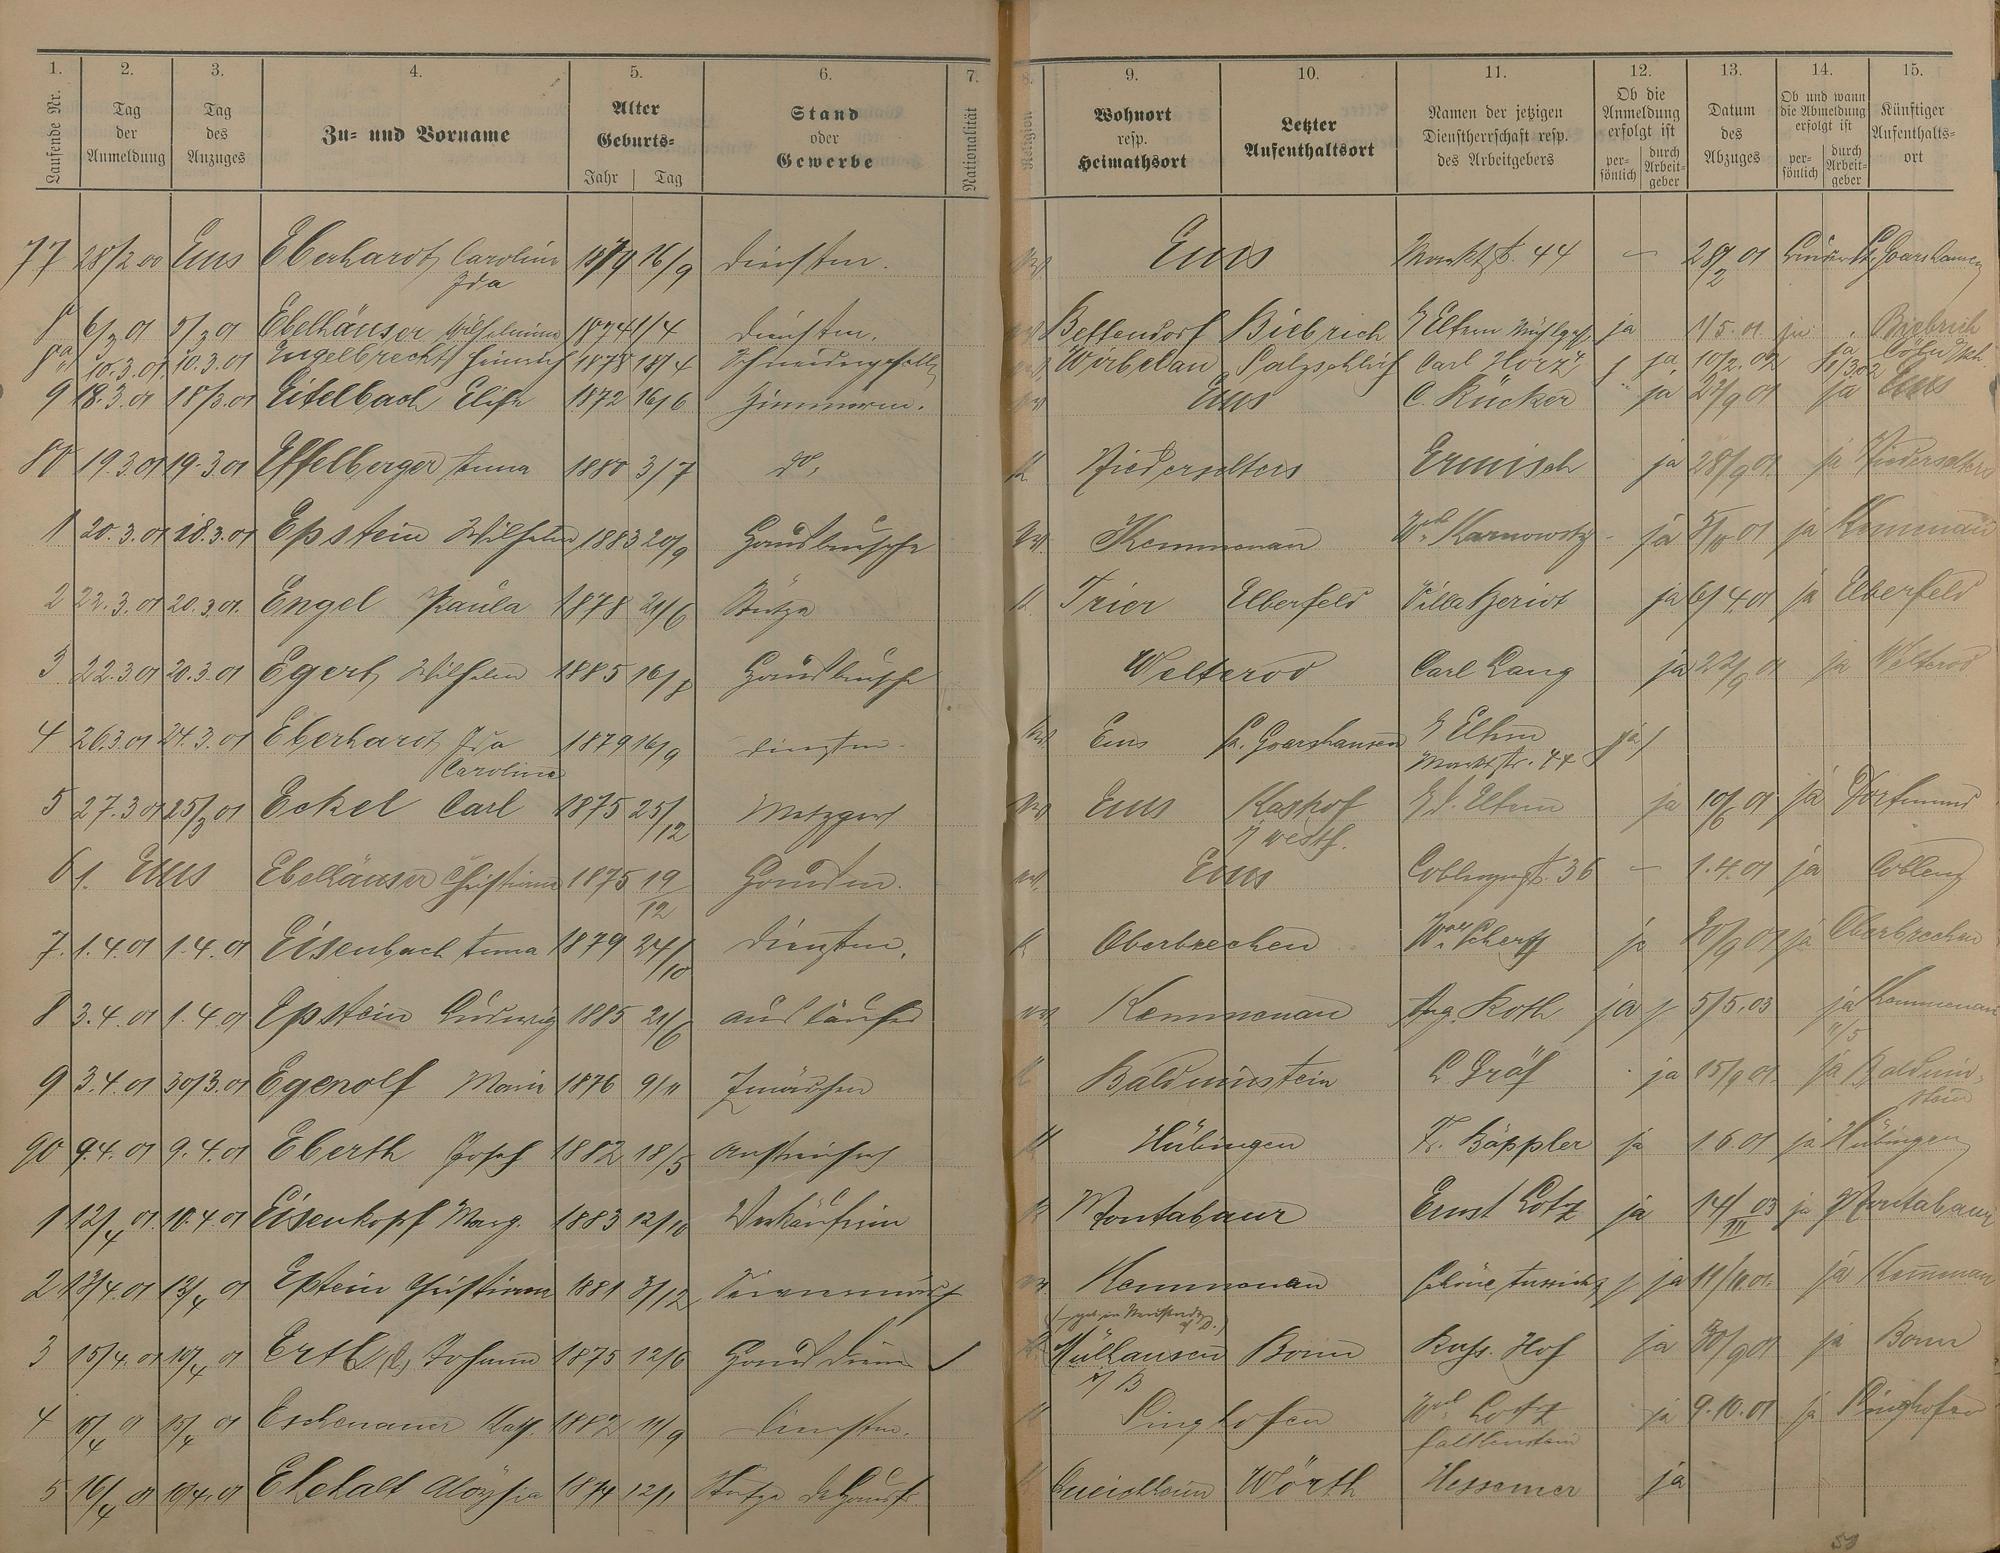 1. 2. 3. 4. 5. 6. 7. 8. 9. 10. 11. 12. 13. 14. 15.
Laufende Nr.
Tag der Anmeldung
Tag des Anzuges
Zu- und Vorname
Alter
Geburts-
Jahr Tag
Stand oder Gewerbe
Nationalität
Religion
Wohnort resp. Heimathsort
Letzter Aufenthaltsort
Namen der jetzigen Dienstherrschaft resp. des Arbeitgebers
Ob die Anmeldung erfolgt ist
per-sönlich durch Arbeit-geber
Datum des Abzuges
Ob und wann die Abmeldung erfolgt ist
per-sönlich durch Arbeit-geber
Künftiger Aufenthalts-ort
77 28/2 00 Ems Eberhardt Carolina 1879 16/9 Dienstm. Ems Marktst. 44 — 28/2 01 St. Goarshausen
Ida
8 6/3 01 5/3 01 Ebelhäuser Wilhelmine 1874 1/4 Dienstm. Bettendorf Biebrich Eltern ja 1/5. 01 ja Biebrich
8a 10.3.01 10.3.01 Engelbrecht Heinrich 1878 18/4 Salzschlirf Carl ja 10/2. 02 ja
11/3 02
9 18.3.01 18/3.01 Eitelbach Elise 1872 16/6 Zimmerm. Ems C. Rücker ja 27/9 01 ja Ems
80 19.3.01 19.3.01 Effelberger Anna 1880 3/7 do. Niederselters Ermisch ja 28/9 01. ja Niederselters
1 20.3.01 18.3.01 Epstein Wilhelm 1883 20/9 Hausbursche Kemmenau Wwe Karnowsky ja 01 ja Kemmenau
2 22.3.01 20.3.01. Engel Paula 1878 21/6 Stütze Trier Elberfeld Villa Beriot ja 6/4 01 ja Elberfeld
3 22.3.01 20.3.01 Egert Wilhelm 1885 16/8 Hausbursche Welterod Carl Lang ja 22/9 01 ja Welterod
4 26.3.01 24.3.01 Eberhardt Ida 1879 16/9 Dienstm. Ems St. Goarshausen Eltern ja
Carolina Marktstr. 44
5 27.3 01 25/3 01 Eckel Carl 1875 25/12 Metzger Ems Eltern ja 10/6 01 ja Dortmund
i/ Westf.
6 1. Ems Ebelhäuser Christiane 1875 19/12 Ems Coblenzerst. 36 — 1.4.01 ja Coblenz
7. 1.4.01 1.4.01 Eisenbach Anna 1879 24/10 Dienstm. Oberbrechen ja 01 ja Oberbrechen
8 3.4.01 1.4.01 Epstein Ludwig 1885 21/6 Ausläufer Kemmenau Aug. Roth ja 5/5.03 ja Kemmenau
11/5
9 3.4.01 30/3.01 Egenolf Maria 1876 9/11 Zmädchen Balduinstein L. Gräf ja 15/9 01. ja Balduin-
stein
90 9.4.01 9.4.01 Eberth Josef 1882 18/5 Anstreicher Hübingen Fr. Bäppler ja 1 6.01 ja Hübingen
1 12/4 01 10.4.01 Eisenkopf Marg. 1883 12/10 Verkäuferin Montabaur Ernst Lotz ja 14/III 03 ja Montabaur
2 13/4.01 13/4 01 Eptein Christiane 1881 3/12 Kemmenau ja 11/11 01. ja Kemmenau
3 15/4.01 10/4 01 Ertl Johann 1875 12/6 Hausdiener Mülhausen Bonn Russ. Hof ja 30/9 01 ja Bonn
4 15/4 01 Eschenauer Kath. 1882 11/9 Dienstm. Singhofen Wwe Lotz ja 9.10.01 ja Singhofen
Falkenstein
5 16/4 01 Ehehalt Aloysia 1874 12/1 Stütze d. Hausf. Queichheim Wörth Hessemer ja